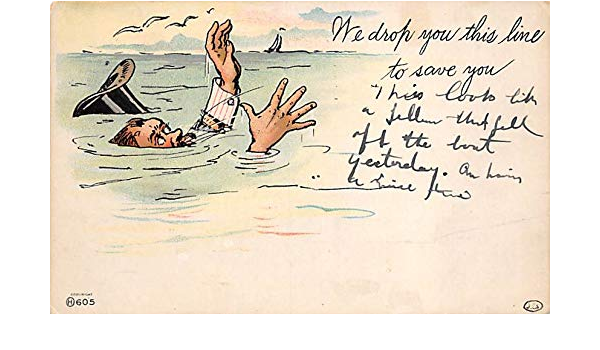 We drop you this line
to save you
This looks like
a fellow that fell
off the boat
yesterday. Am having
a
COPYRIGHT
H 605